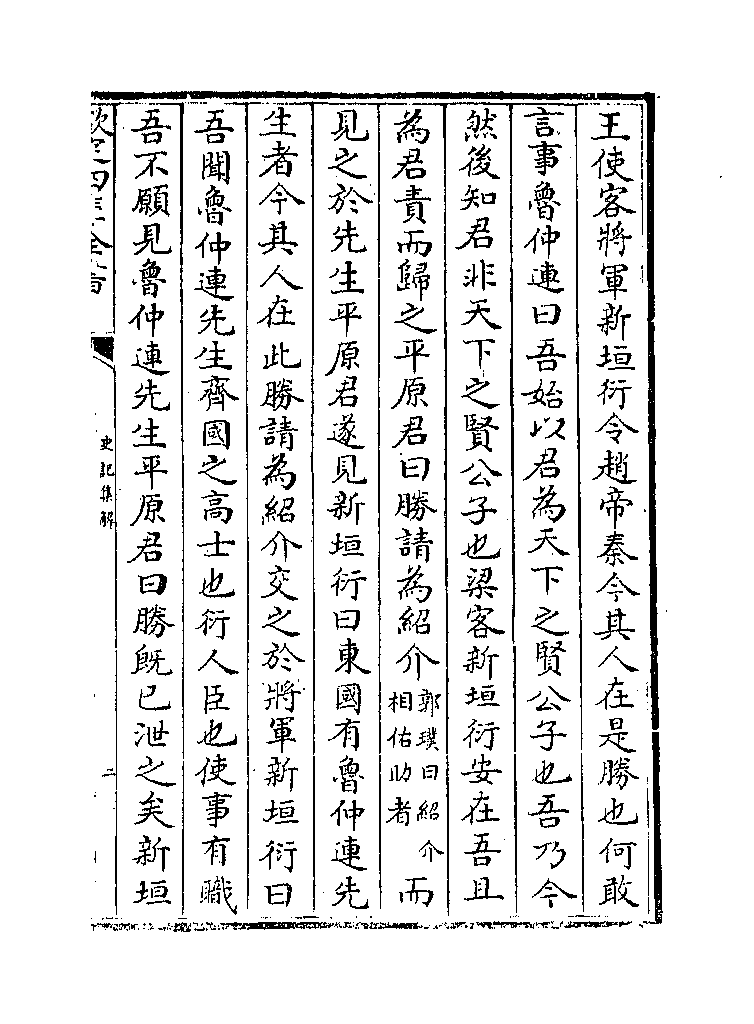 王使客將軍新垣衍令趙帝秦今其人在是勝也何敢
言事魯仲連曰吾始以君為天下之賢公子也吾乃今
然後知君非天下之賢公子也梁客新垣衍安在吾且
為君責而歸之平原君曰勝請為紹介郭璞曰紹介相佑助者而
見之於先生平原君遂見新垣衍曰東國有魯仲連先
生者今其人在此勝請為紹介交之於將軍新垣衍曰
吾聞魯仲連先生齊國之高士也衍人臣也使事有職
吾不願見魯仲連先生平原君曰勝既已泄之矣新垣
欽定四庫全書
史記集解
二